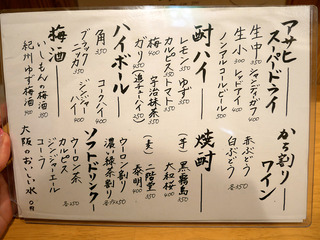 アサヒスーパードライ
生中 550
生小 350
シャンディガフ 400
レッドアイ 400
ノンアルコールビール 500
酎ハイ
レモン ゆず 350
カルピス トマト 350
梅 400 宇治抹茶 350
ガリ 350 (追チューハイ)
ハイボール
角 350 コークハイ 400
ブラックニッカ 350 ジンジャーハイ 400
梅酒
いしもんの梅酒 350
紀州ゆず梅酒 400
かち割りワイン
赤ぶどう
白ぶどう 各350
焼酎
(芋) 黒霧島 450
大和桜
(麦) 二階堂 350
泰明 400
ウーロン割り
濃い緑茶割り
ソフトドリンク
ウーロン茶
カルピス
ジンジャーエール
コーラ 各250
大阪おいしい水 0円